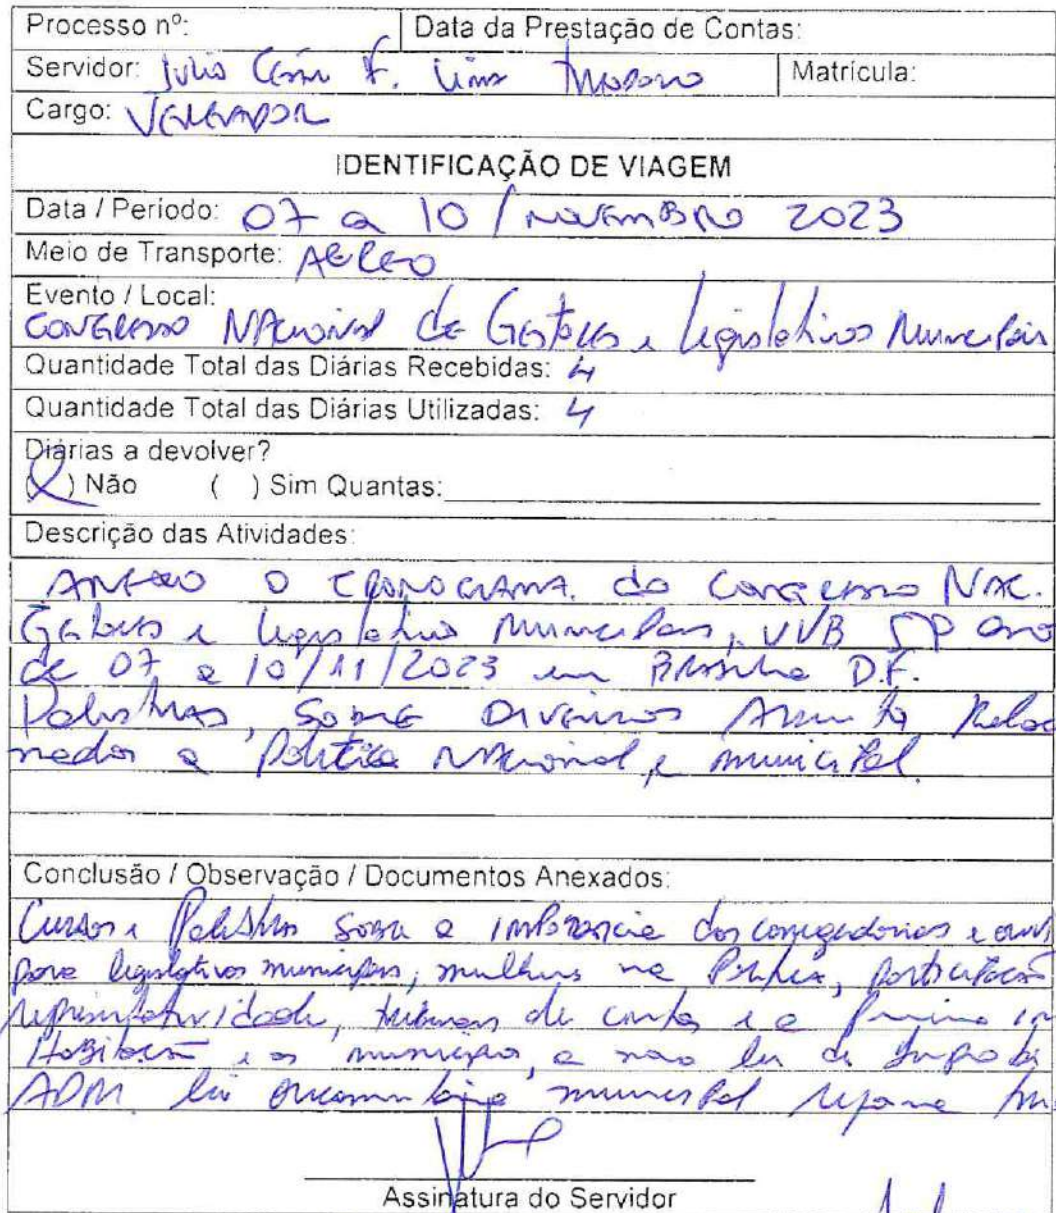 Processo nº: Data da Prestação de Contas:
Servidor: Julio César F. Lima Matrícula:
Cargo: VEREADOR
IDENTIFICAÇÃO DE VIAGEM
Data / Período: 07 a 10 / NOVEMBRO 2023
Meio de Transporte: AEREO
Evento / Local:
CONGRESSO NAcional de Gestores e Legislativos Municipais
Quantidade Total das Diárias Recebidas: 4
Quantidade Total das Diárias Utilizadas: 4
Diárias a devolver?
(X) Não ( ) Sim Quantas:
Descrição das Atividades:
ANEXO O CRONOGRAMA. do Congresso NAC.
Gestores e legislativo Municipais, UVB
de 07 a 10/11/2023 em Brasilia D.F.
Palestras, SOBRE Diversos Assuntos Relacio
nados a Politica NAcional e municipal.
Conclusão / Observação / Documentos Anexados:
Cursos e Palestras Sobre a importancia das corregedorias e ouvi
para legislativos municipais, mulheres na Politica, participação
representatividade, tribunais de contas e a
Habitação e os municipios, a nova lei de Improbi
ADM. lei orçamentaria municipal reforma
Assinatura do Servidor